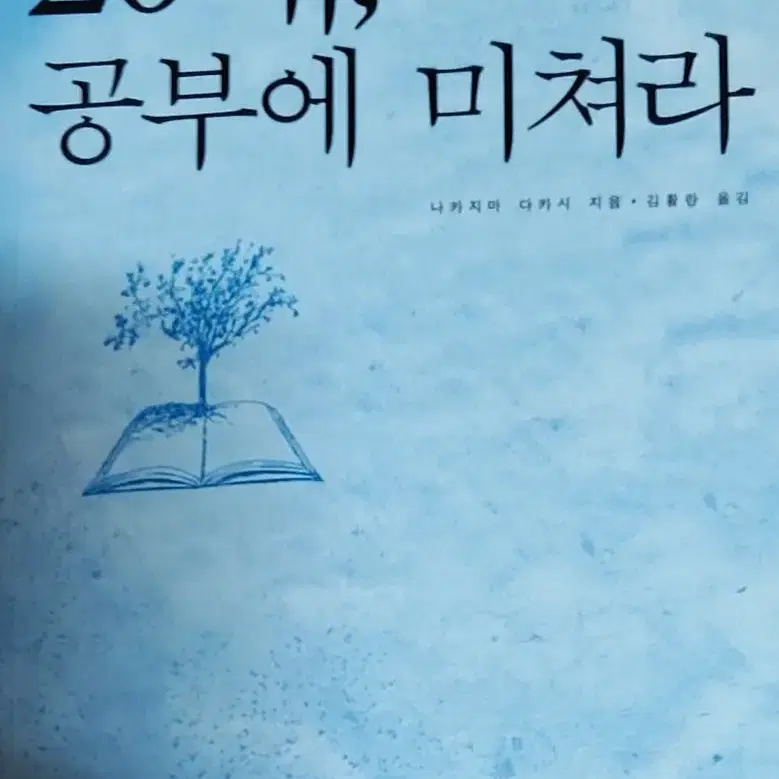 공부에 미쳐라
나카지마 다카시 지음 · 김활란 옮김